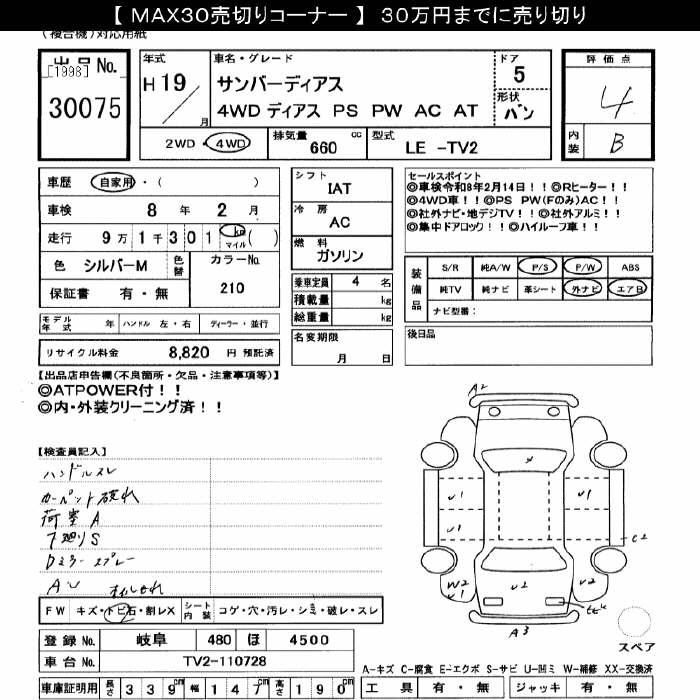 【 MAX30売切りコーナー 】 30万円までに売り切り
(複合機)対応用紙
出品No. [1998] 30075
年式 H19 月
車名・グレード サンバーディアス
4WD ディアス PS PW AC AT
ドア 5
形状 バン
評価点 4
内装 B
2WD・4WD
排気量 660 cc
型式 LE -TV2
車歴 自家用・( )
車検 8 年 2 月
走行 9万1千301 km マイル ( )
色 シルバーM 色替 カラーNo. 210
保証書 有・無
シフト IAT
冷房 AC
燃料 ガソリン
乗車定員 4 名
積載量 kg
総重量 kg
セールスポイント
◎車検令和8年2月14日!!◎Rヒーター!!
◎4WD車!!◎PS PW(Fのみ)AC!!
◎社外ナビ・地デジTV!!◎社外アルミ!!
◎集中ドアロック!!◎ハイルーフ車!!
装備品 S/R 純A/W P/S P/W ABS
純TV 純ナビ 革シート 外ナビ エアB
ナビ型番:
モデル年式 年 ハンドル 左・右 ディーラー・並行
リサイクル料金 8,820 円 預託済
名変期限 月 日
後日品
【出品店申告欄(不良箇所・欠品・注意事項等)】
◎ATPOWER付!!
◎内・外装クリーニング済!!
【検査員記入】
ハンドルスレ
カーペット破れ
荷室A
下廻りS
Dミラースプレー
AU
FW キズ・トビ石・割レX シート内装 コゲ・穴・汚レ・シミ・破レ・スレ
登録No. 岐阜 480 ほ 4500
車台No. TV2-110728
車庫証明用 長さ 339cm 幅 147cm 高さ 190cm
A2
U1
U1
U1
C2
W2
U1
U2
U2
A3
スペア
A-キズ C-腐食 E-エクボ S-サビ U-凹ミ W-補修 XX-交換済
工具 有・無 ジャッキ 有・無